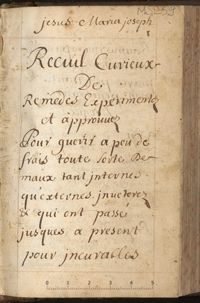 jesus Maria joseph
Recuil Curieux
De
Remedes Experimentez
et approuvez
Pour guerir a peu de
frais toute sorte De
maux tant internes
qu'externes inveterez
& qui ont passé
jusques a present
pour incurables
0 1 2 3 4 5